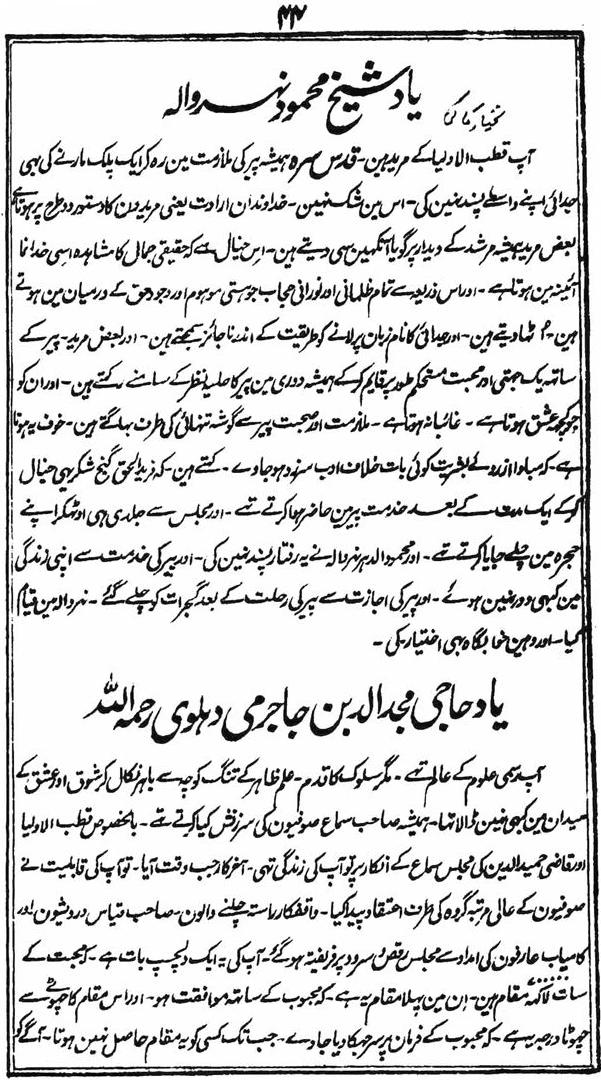 ۴۴
یاد شیخ محمود نہروالہ
آپ قطب الاولیا کے مرید ہین۔ قدس سرہ ہمیشہ پیر کی ملازمت مین رہ کر ایک پلک مارنے کی بہی
جدائی اپنے واسطے پسند نہین کی۔ اس مین شک نہین۔ خداوندان ارادت یعنی مریدون کا دستور دو طرح پر ہوتا ہے
بعض مرید ہمیشہ مرشد کے دیدار پر گویا آنکہین سی دیتے ہین۔ اس خیال سے کہ حقیقی جمال کا مشاہدہ اسی خدا نما
آئینہ مین ہوتا ہے۔ اور اس ذریعہ سے تمام ظلمانی اور نورانی حجاب جو ہستی موہوم اور وجود حق کے درمیان مین ہوتے
ہین۔ اُٹہا دیتے ہین۔ اور جدائی کا نام زبان پر لانے کو طریقت کے اندر ناجائز سمجہتے ہین۔ اور بعض مرید۔ پیر کے
ساتہ یک جہتی اور محبت مستحکم طور پر قایم کر کے ہمیشہ دوری مین پیر کا حلیہ نظر کے سامنے رکہتے ہین۔ اور ان کو
جو کچہ عشق ہوتا ہے۔ غائبانہ ہوتا ہے۔ ملازمت اور صحبت پیر سے گوشہ تنہائی کی طرف بہاگتے ہین۔ خوف یہ ہوتا
ہے۔ کہ مبادا از روئے بشریت کوئی بات خلاف ادب سرزد ہو جاوے۔ کہتے ہین۔ کہ فرید الحق گنج شکر یہی خیال
کر کے ایک مدت کے بعد خدمت پیر مین حاضر ہوا کرتے تہے۔ اور مجلس سے جلدی ہی اوٹہکر اپنے
حجرہ مین چلے جایا کرتے تہے۔ اور محمود الدہر نہروالہ نے یہ رفتار پسند نہین کی۔ اور پیر کی خدمت سے اپنی زندگی
مین کبہی دور نہین ہوئے۔ اور پیر کی اجازت سے پیر کی رحلت کے بعد گجرات کو چلے گئے۔ نہروالہ مین قیام
کیا۔ اور وہین خوابگاہ بہی اختیار کی۔
یاد حاجی مجد الدین جاجرمی دہلوی رحمہ اللہ
آپ رسمی علوم کے عالم تہے۔ مگر سلوک کا قدم۔ علم ظاہر کے تنگ کوچہ سے باہر نکال کر شوق اور عشق کے
میدان مین کبہی نہین ڈالا تہا۔ ہمیشہ صاحب سماع صوفیون کی سرزنش کیا کرتے تہے۔ بالخصوص قطب الاولیا
اور قاضی حمید الدین کی مجلس سماع کے انکار پر تو آپ کی زندگی تہی۔ آخر کار جب وقت آیا۔ تو آپ کی قابلیت نے
صوفیون کے عالی مرتبہ گروہ کی طرف اعتقاد پیدا کیا۔ واقفکار راستہ چلنے والون۔ صاحب قیاس درویشون اور
کامیاب عارفون کی امداد سے مجلس رقص و سرود پر فریفتہ ہو گئے۔ آپ کی یہ ایک دلچسپ بات ہے۔ کہ محبت کے
سات لاکہہ مقام ہین۔ اِن مین پہلا مقام یہ ہے۔ کہ محبوب کے ساتہ موافقت ہو۔ اور اس مقام کا چہوٹے سے
چہوٹا درجہ یہ ہے۔ کہ محبوب کے فرمان پر سر جہکا دیا جاوے۔ جب تک کسی کو یہ مقام حاصل نہین ہوتا۔ آگے کو